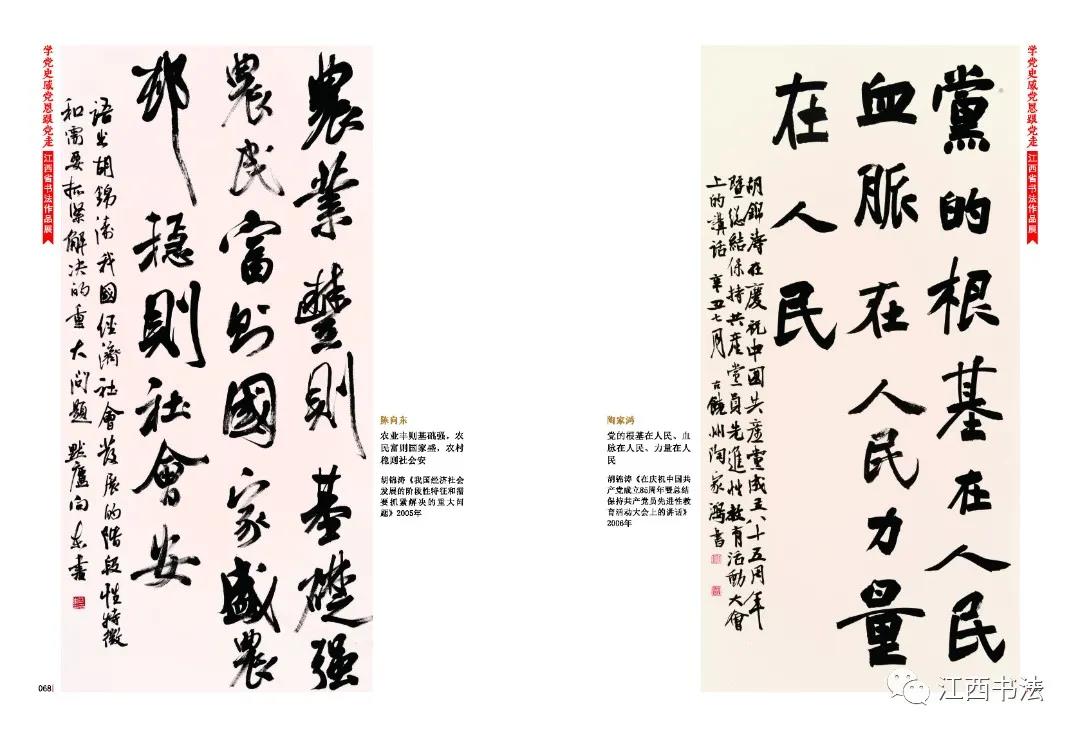 学党史感党恩跟党走
江西省书法作品展
農業豐則基礎强
農民富則國家盛農
邨穩則社會安
語出胡錦濤我國經濟社會發展的階段性特徵
和需要抓緊解决的重大問題 默廬向东書
陈向东
农业丰则基础强，农
民富则国家盛，农村
稳则社会安
胡锦涛《我国经济社会
发展的阶段性特征和需
要抓紧解决的重大问
题》2005年
068
学党史感党恩跟党走
江西省书法作品展
黨的根基在人民
血脈在人民力量
在人民
胡錦濤在慶祝中国共産黨成立八十五周年
暨总結保持共産黨員先進性教育活動大會
上的講话 辛丑七月 古饒州陶家鴻書
陶家鸿
党的根基在人民、血
脉在人民、力量在人
民
胡锦涛《在庆祝中国共
产党成立85周年暨总结
保持共产党员先进性教
育活动大会上的讲话》
2006年
江西书法